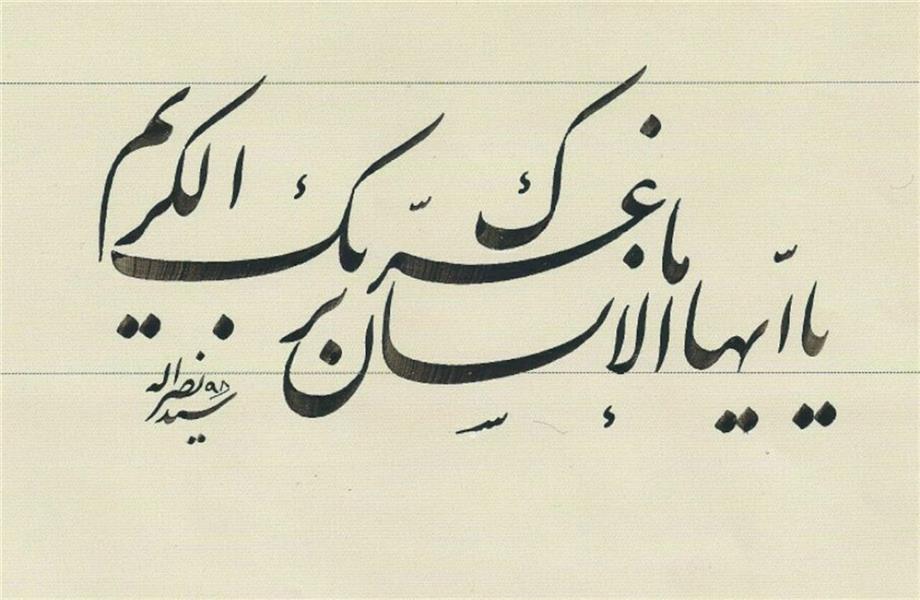 یا ایّها الإنسان ما غرّک بربّک الکریم
سید نصرالله ۹۸